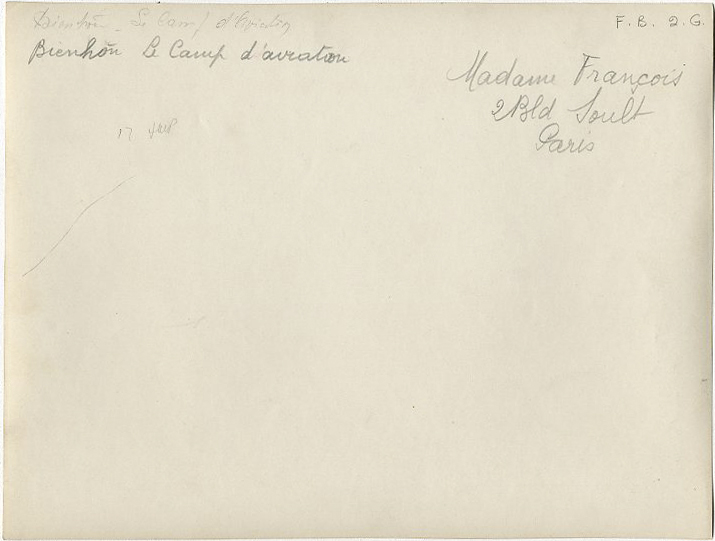 Bienhôn _ Le Camp d'Aviation
F. B. 2. G.
Bienhôn Le Camp d'aviation
Madame François
2 Bld Soult
Paris
17